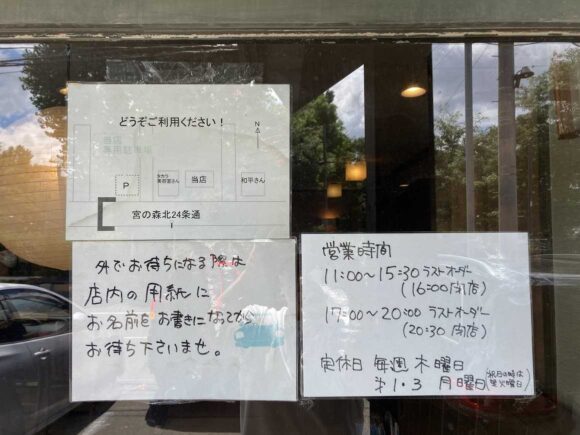 どうぞご利用ください！
N
当店
専用駐車場
P
美容室さん
当店
和平さん
宮の森北24条通
外でお待ちになる際は
店内の用紙に
お名前をお書きになってから
お待ち下さいませ。
営業時間
11:00〜15:30 ラストオーダー
(16:00閉店)
17:00〜20:00 ラストオーダー
(20:30 閉店)
定休日 毎週 木曜日
オ1・3 月曜日(祝日の時は翌火曜日)